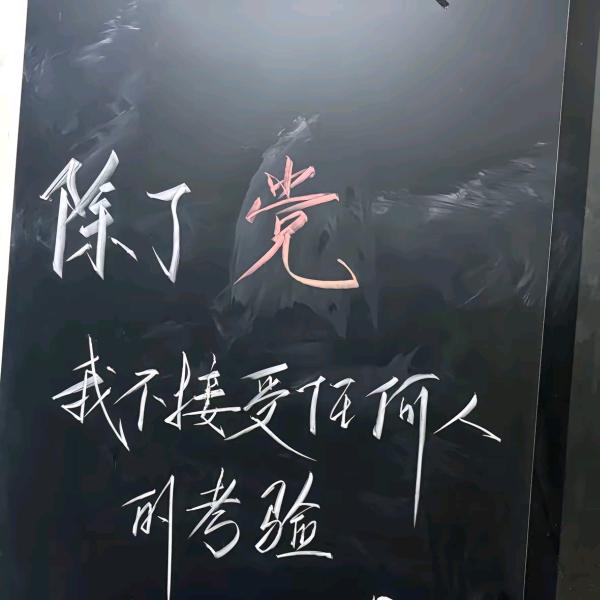 除了党
我不接受任何人
的考验